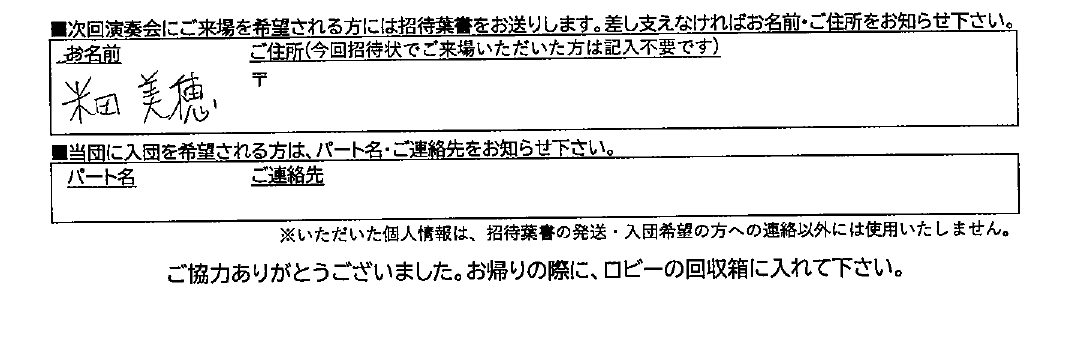 ■次回演奏会にご来場を希望される方には招待葉書をお送りします。差し支えなければお名前・ご住所をお知らせ下さい。
お名前 ご住所(今回招待状でご来場いただいた方は記入不要です)
〒
米田 美穂
■当団に入団を希望される方は、パート名・ご連絡先をお知らせ下さい。
パート名 ご連絡先
※いただいた個人情報は、招待葉書の発送・入団希望の方への連絡以外には使用いたしません。
ご協力ありがとうございました。お帰りの際に、ロビーの回収箱に入れて下さい。